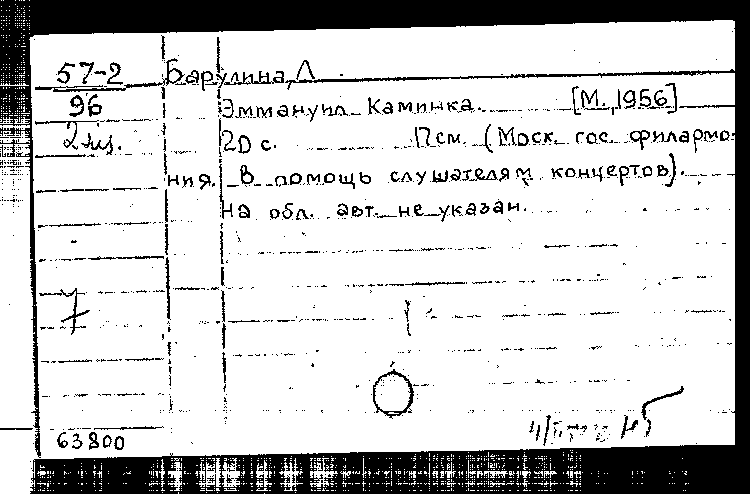 57-2 Барулина, Л
96 Эммануил Каминка. [М., 1956]
2 экз. 20 с. 17 см. (Моск. гос. филармо-
ния. В помощь слушателям концертов).
На обл. авт. не указан.
7
63800